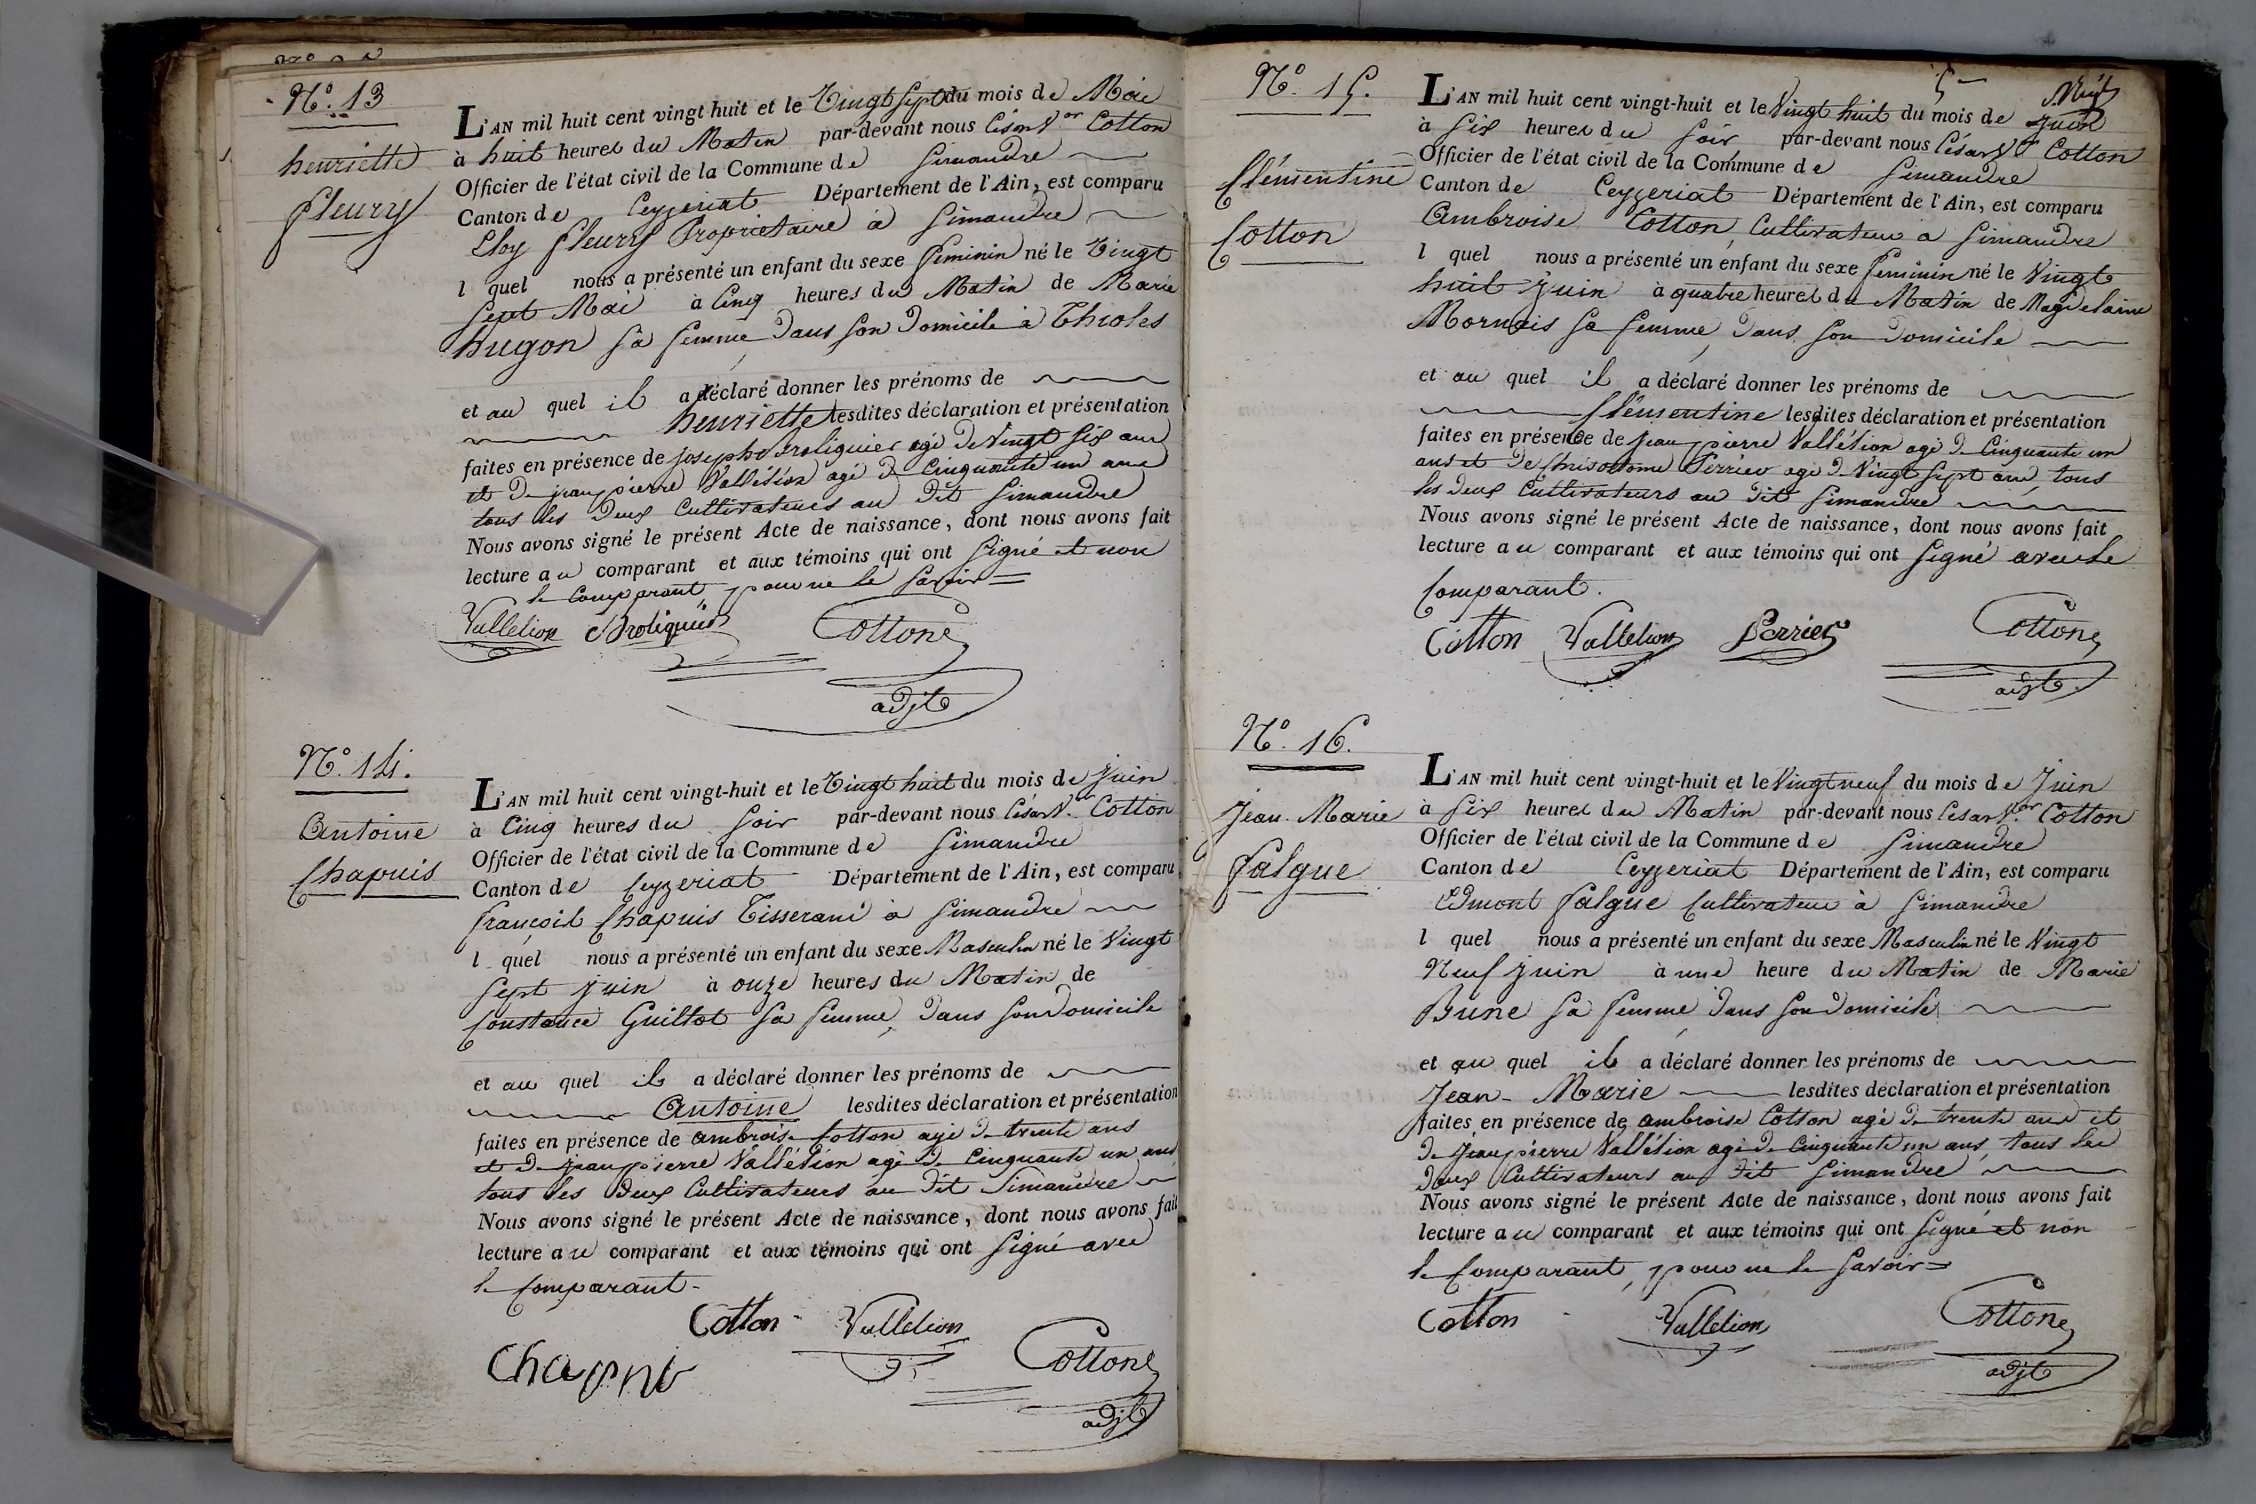 N.º 13
henriette
fleury
L'AN mil huit cent vingt-huit et le Vingt Sept du mois de Mai
à huit heures du Matin par-devant nous César V.or Cotton
Officier de l'état civil de la Commune de Simandre
Canton de Ceyzeriat Département de l'Ain, est comparu
Eloy fleury Propriétaire à Simandre
l quel nous a présenté un enfant du sexe féminin né le Vingt
Sept Mai à Cinq heures du Matin de Marie
hugon sa femme dans son domicile à Thioles
et au quel il a déclaré donner les prénoms de
henriette lesdites déclaration et présentation
faites en présence de joseph agé de Vingt six ans
et De jean pierre Vallélion agé De Cinquante un ans
tous les Deux Cultivateurs au Dit Simandre
Nous avons signé le présent Acte de naissance, dont nous avons fait
lecture au comparant et aux témoins qui ont Signé et non
le Comparant, pour ne le Savoir =
Vallelion Cottone
adjt
N.º 14.
Antoine
Chapuis
L'AN mil huit cent vingt-huit et le Vingt huit du mois de Juin
à Cinq heures du Soir par-devant nous César V.or Cotton
Officier de l'état civil de la Commune de Simandre
Canton de Ceyzeriat Département de l'Ain, est comparu
françois Chapuis Tisserand à Simandre
l quel nous a présenté un enfant du sexe Masculin né le Vingt
Sept juin à onze heures du Matin de
Constance Guillot Sa femme, Dans son Domicile
et au quel il a déclaré donner les prénoms de
Antoine lesdites déclaration et présentation
faites en présence de ambroise Cotton agé De trente ans
et De jean pierre Vallélion agé De Cinquante un ans
tous les Deux Cultivateurs au Dit Simandre
Nous avons signé le présent Acte de naissance, dont nous avons fait
lecture au comparant et aux témoins qui ont Signé avec
le Comparant -
Cotton Vallelion Cottone
Chapui
adjt
5
N.º 15.
Clémentine
Cotton
L'AN mil huit cent vingt-huit et le Vingt huit du mois de Juin
à Six heures du Soir par-devant nous César V.or Cotton
Officier de l'état civil de la Commune de Simandre
Canton de Ceyzeriat Département de l'Ain, est comparu
Ambroise Cotton, Cultivateur à Simandre
l quel nous a présenté un enfant du sexe féminin né le Vingt
huit Juin à quatre heures du Matin de Magdelaine
Mornais Sa femme, Dans Son Domicile
et au quel il a déclaré donner les prénoms de
Clémentine lesdites déclaration et présentation
faites en présence de jean pierre Vallélion agé De Cinquante un
ans et De Chrisostome Perrier agé De Vingt Sept ans, tous
les Deux Cultivateurs au Dit Simandre
Nous avons signé le présent Acte de naissance, dont nous avons fait
lecture au comparant et aux témoins qui ont Signé avec le
Comparant.
Cotton Vallelion Perrier Cottone
adjt
N.º 16.
Jean-Marie
falgue
L'AN mil huit cent vingt-huit et le Vingt neuf du mois de Juin
à Six heures du Matin par-devant nous César V.or Cotton
Officier de l'état civil de la Commune de Simandre
Canton de Ceyzeriat Département de l'Ain, est comparu
Edmont falgue Cultivateur à Simandre
l quel nous a présenté un enfant du sexe Masculin né le Vingt
Neuf juin à une heure du Matin de Marie
Bune Sa femme Dans Son Domicile
et au quel il a déclaré donner les prénoms de
Jean-Marie lesdites déclaration et présentation
faites en présence de ambroise Cotton agé De trente ans et
De Jean pierre Vallélion agé De Cinquante un ans, tous les
Deux Cultivateurs au Dit Simandre
Nous avons signé le présent Acte de naissance, dont nous avons fait
lecture au comparant et aux témoins qui ont Signé et non
le Comparant, pour ne le Savoir =
Cotton Vallelion Cottone
adjt